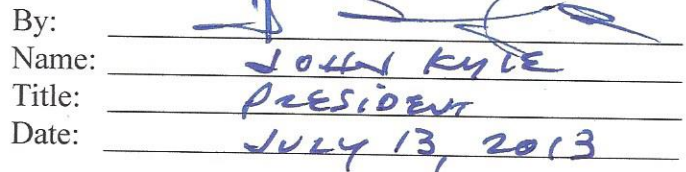 By:
Name: JOHN KYLE
Title: PRESIDENT
Date: JULY 13, 2013